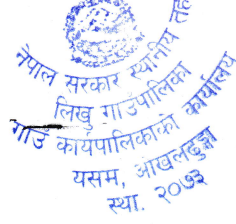 नेपाल सरकार स्थानीय तह
लिखु गाउपालिका
गाउँ कार्यपालिकाको कार्यालय
यसम, ओखलढुङ्गा
स्था. २०७३